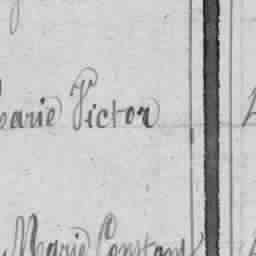 Marie Victor
Marie Constant